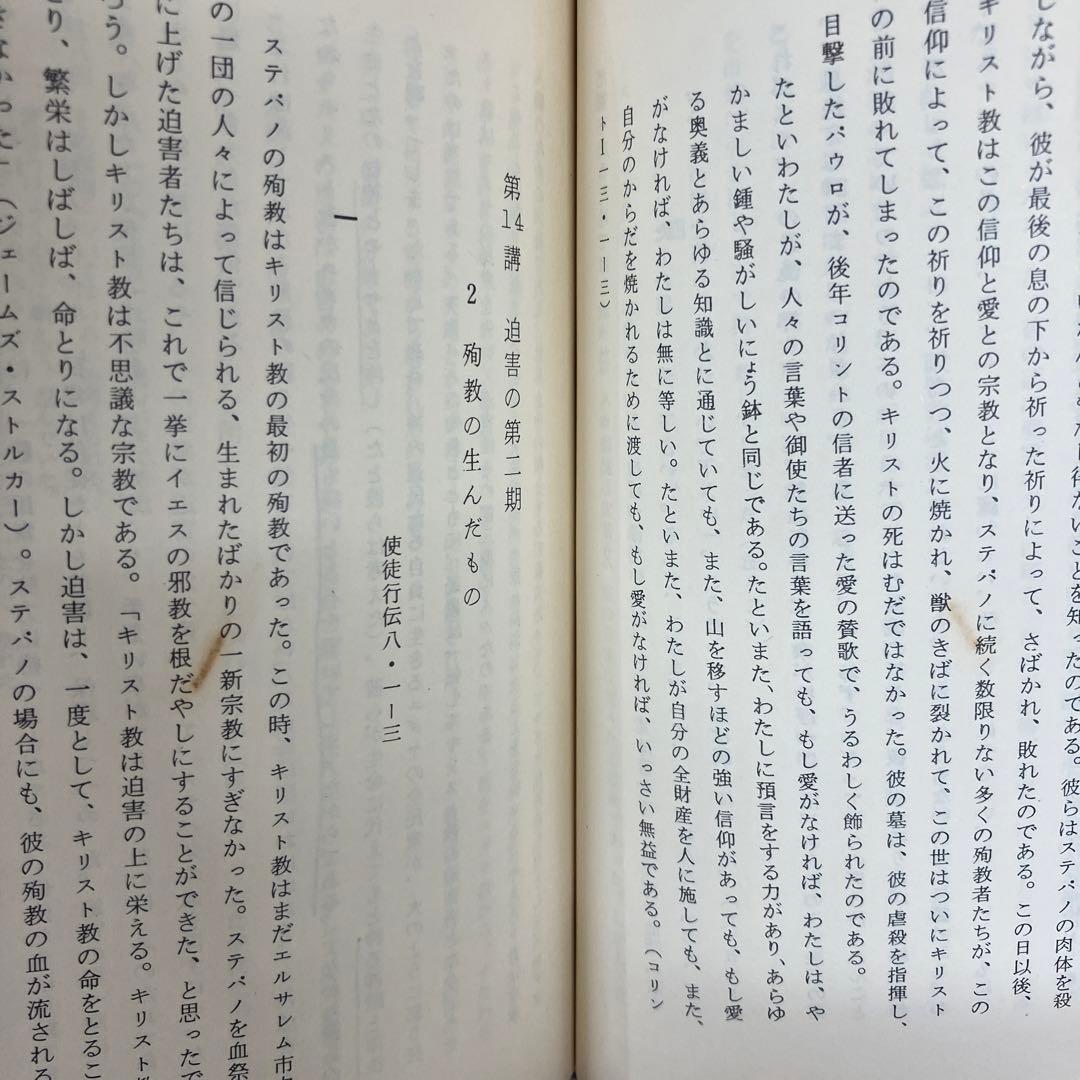 を知ったのである。彼らはステパノの肉体を殺
しながら、彼が最後の息の下から祈った祈りによって、さばかれ、敗れたのである。この日以後、
キリスト教はこの信仰と愛との宗教となり、ステパノに続く数限りない多くの殉教者たちが、この
信仰によって、この祈りを祈りつつ、火に焼かれ、獣のきばに裂かれて、この世はついにキリスト
の前に敗れてしまったのである。キリストの死はむだではなかった。彼の墓は、彼の虐殺を指揮し、
目撃したパウロが、後年コリントの信者に送った愛の賛歌で、うるわしく飾られたのである。
たといわたしが、人々の言葉や御使たちの言葉を語っても、もし愛がなければ、わたしは、や
かましい鍾や騒がしいにょう鉢と同じである。たといまた、わたしに預言をする力があり、あらゆ
る奥義とあらゆる知識とに通じていても、また、山を移すほどの強い信仰があっても、もし愛
がなければ、わたしは無に等しい。たといまた、わたしが自分の全財産を人に施しても、また、
自分のからだを焼かれるために渡しても、もし愛がなければ、いっさい無益である。（コリン
トⅠ一三・一―三）
第14講 迫害の第二期
2 殉教の生んだもの
使徒行伝八・一―三
一
ステパノの殉教はキリスト教の最初の殉教であった。この時、キリスト教はまだエルサレム市
の一団の人々によって信じられる、生まれたばかりの一新宗教にすぎなかった。ステパノを血祭
に上げた迫害者たちは、これで一挙にイエスの邪教を根だやしにすることができた、と思ったで
ろう。しかしキリスト教は不思議な宗教である。「キリスト教は迫害の上に栄える。キリスト
り、繁栄はしばしば、命とりになる。しかし迫害は、一度として、キリスト教の命をとるこ
なかった」（ジェームズ・ストルカー）。ステパノの場合にも、彼の殉教の血が流される